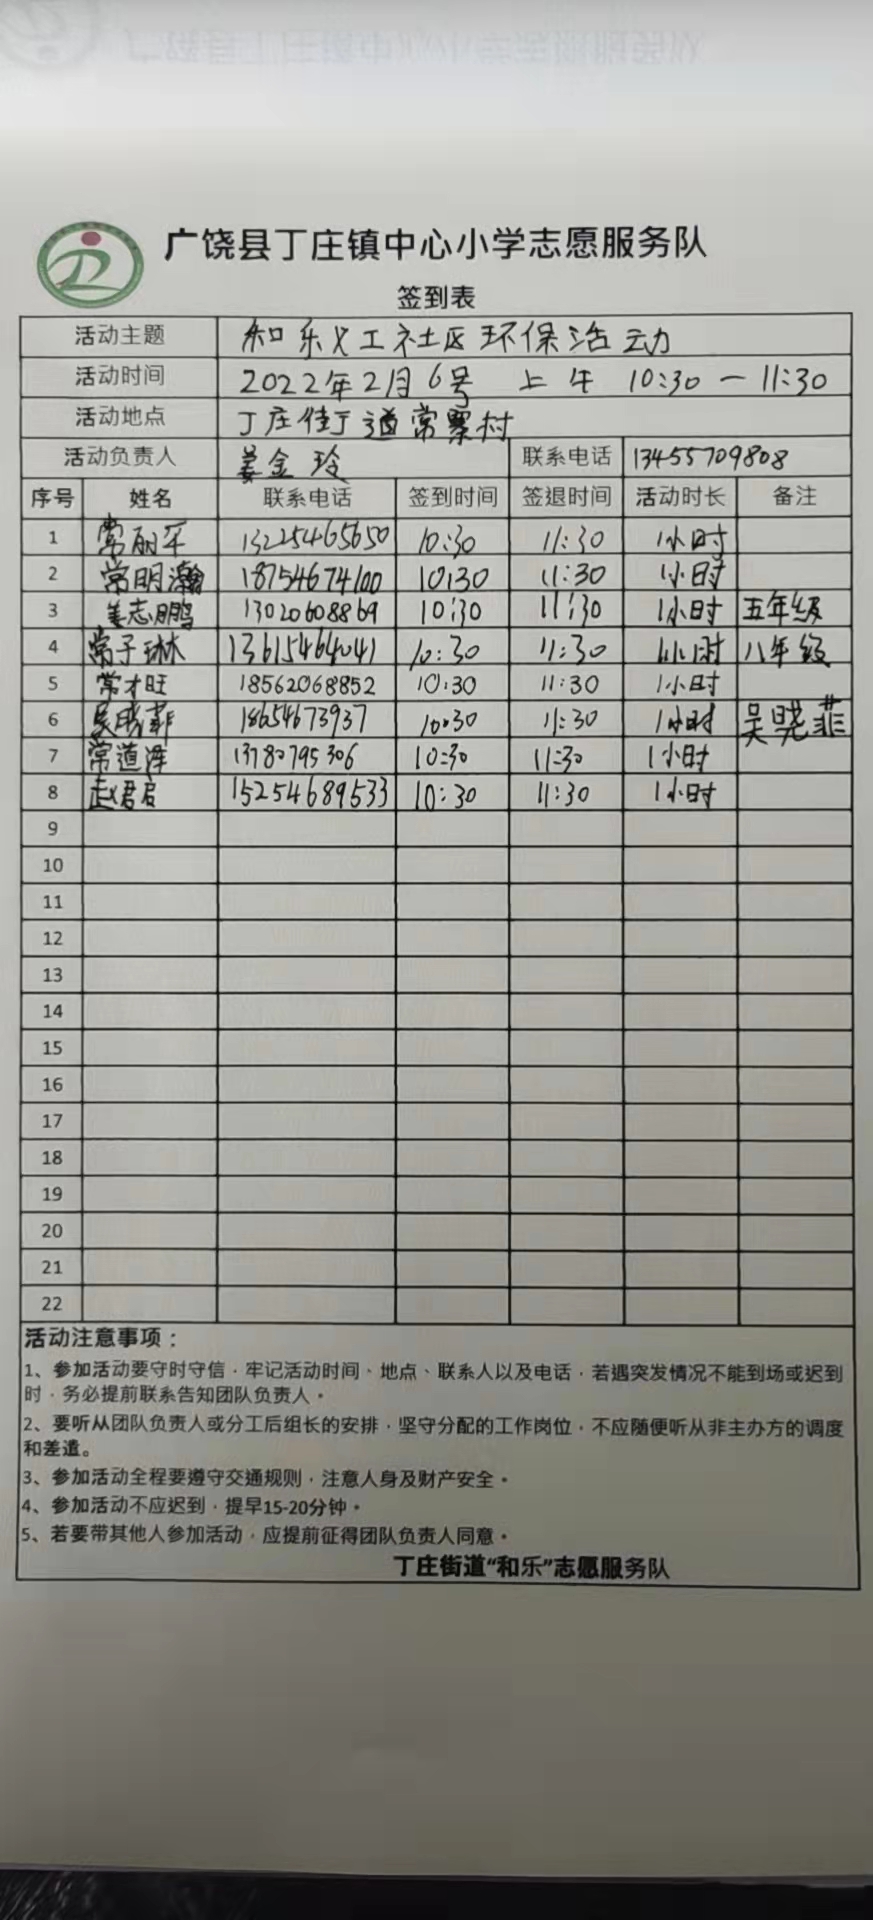 广饶县丁庄镇中心小学志愿服务队
签到表
活动主题 和乐义工社区环保活动
活动时间 2022年2月6号 上午 10:30－11:30
活动地点 丁庄街道常寨村
活动负责人 姜金玲 联系电话 13455709808
序号 姓名 联系电话 签到时间 签退时间 活动时长 备注
1 常丽平 13225465650 10:30 11:30 1小时
2 常明瀚 18754674100 10:30 11:30 1小时
3 姜志鹏 13020608869 10:30 11:30 1小时 五年级
4 常子琳 13615464041 10:30 11:30 1小时 八年级
5 常才旺 18562068852 10:30 11:30 1小时
6 吴晓菲 18654673937 10:30 11:30 1小时 吴晓菲
7 常道泽 13780795306 10:30 11:30 1小时
8 赵君君 15254689533 10:30 11:30 1小时
9
10
11
12
13
14
15
16
17
18
19
20
21
22
活动注意事项：
1、参加活动要守时守信，牢记活动时间、地点、联系人以及电话，若遇突发情况不能到场或迟到
时，务必提前联系告知团队负责人。
2、要听从团队负责人或分工后组长的安排，坚守分配的工作岗位，不应随便听从非主办方的调度
和差遣。
3、参加活动全程要遵守交通规则，注意人身及财产安全。
4、参加活动不应迟到，提早15-20分钟。
5、若要带其他人参加活动，应提前征得团队负责人同意。
丁庄街道“和乐”志愿服务队